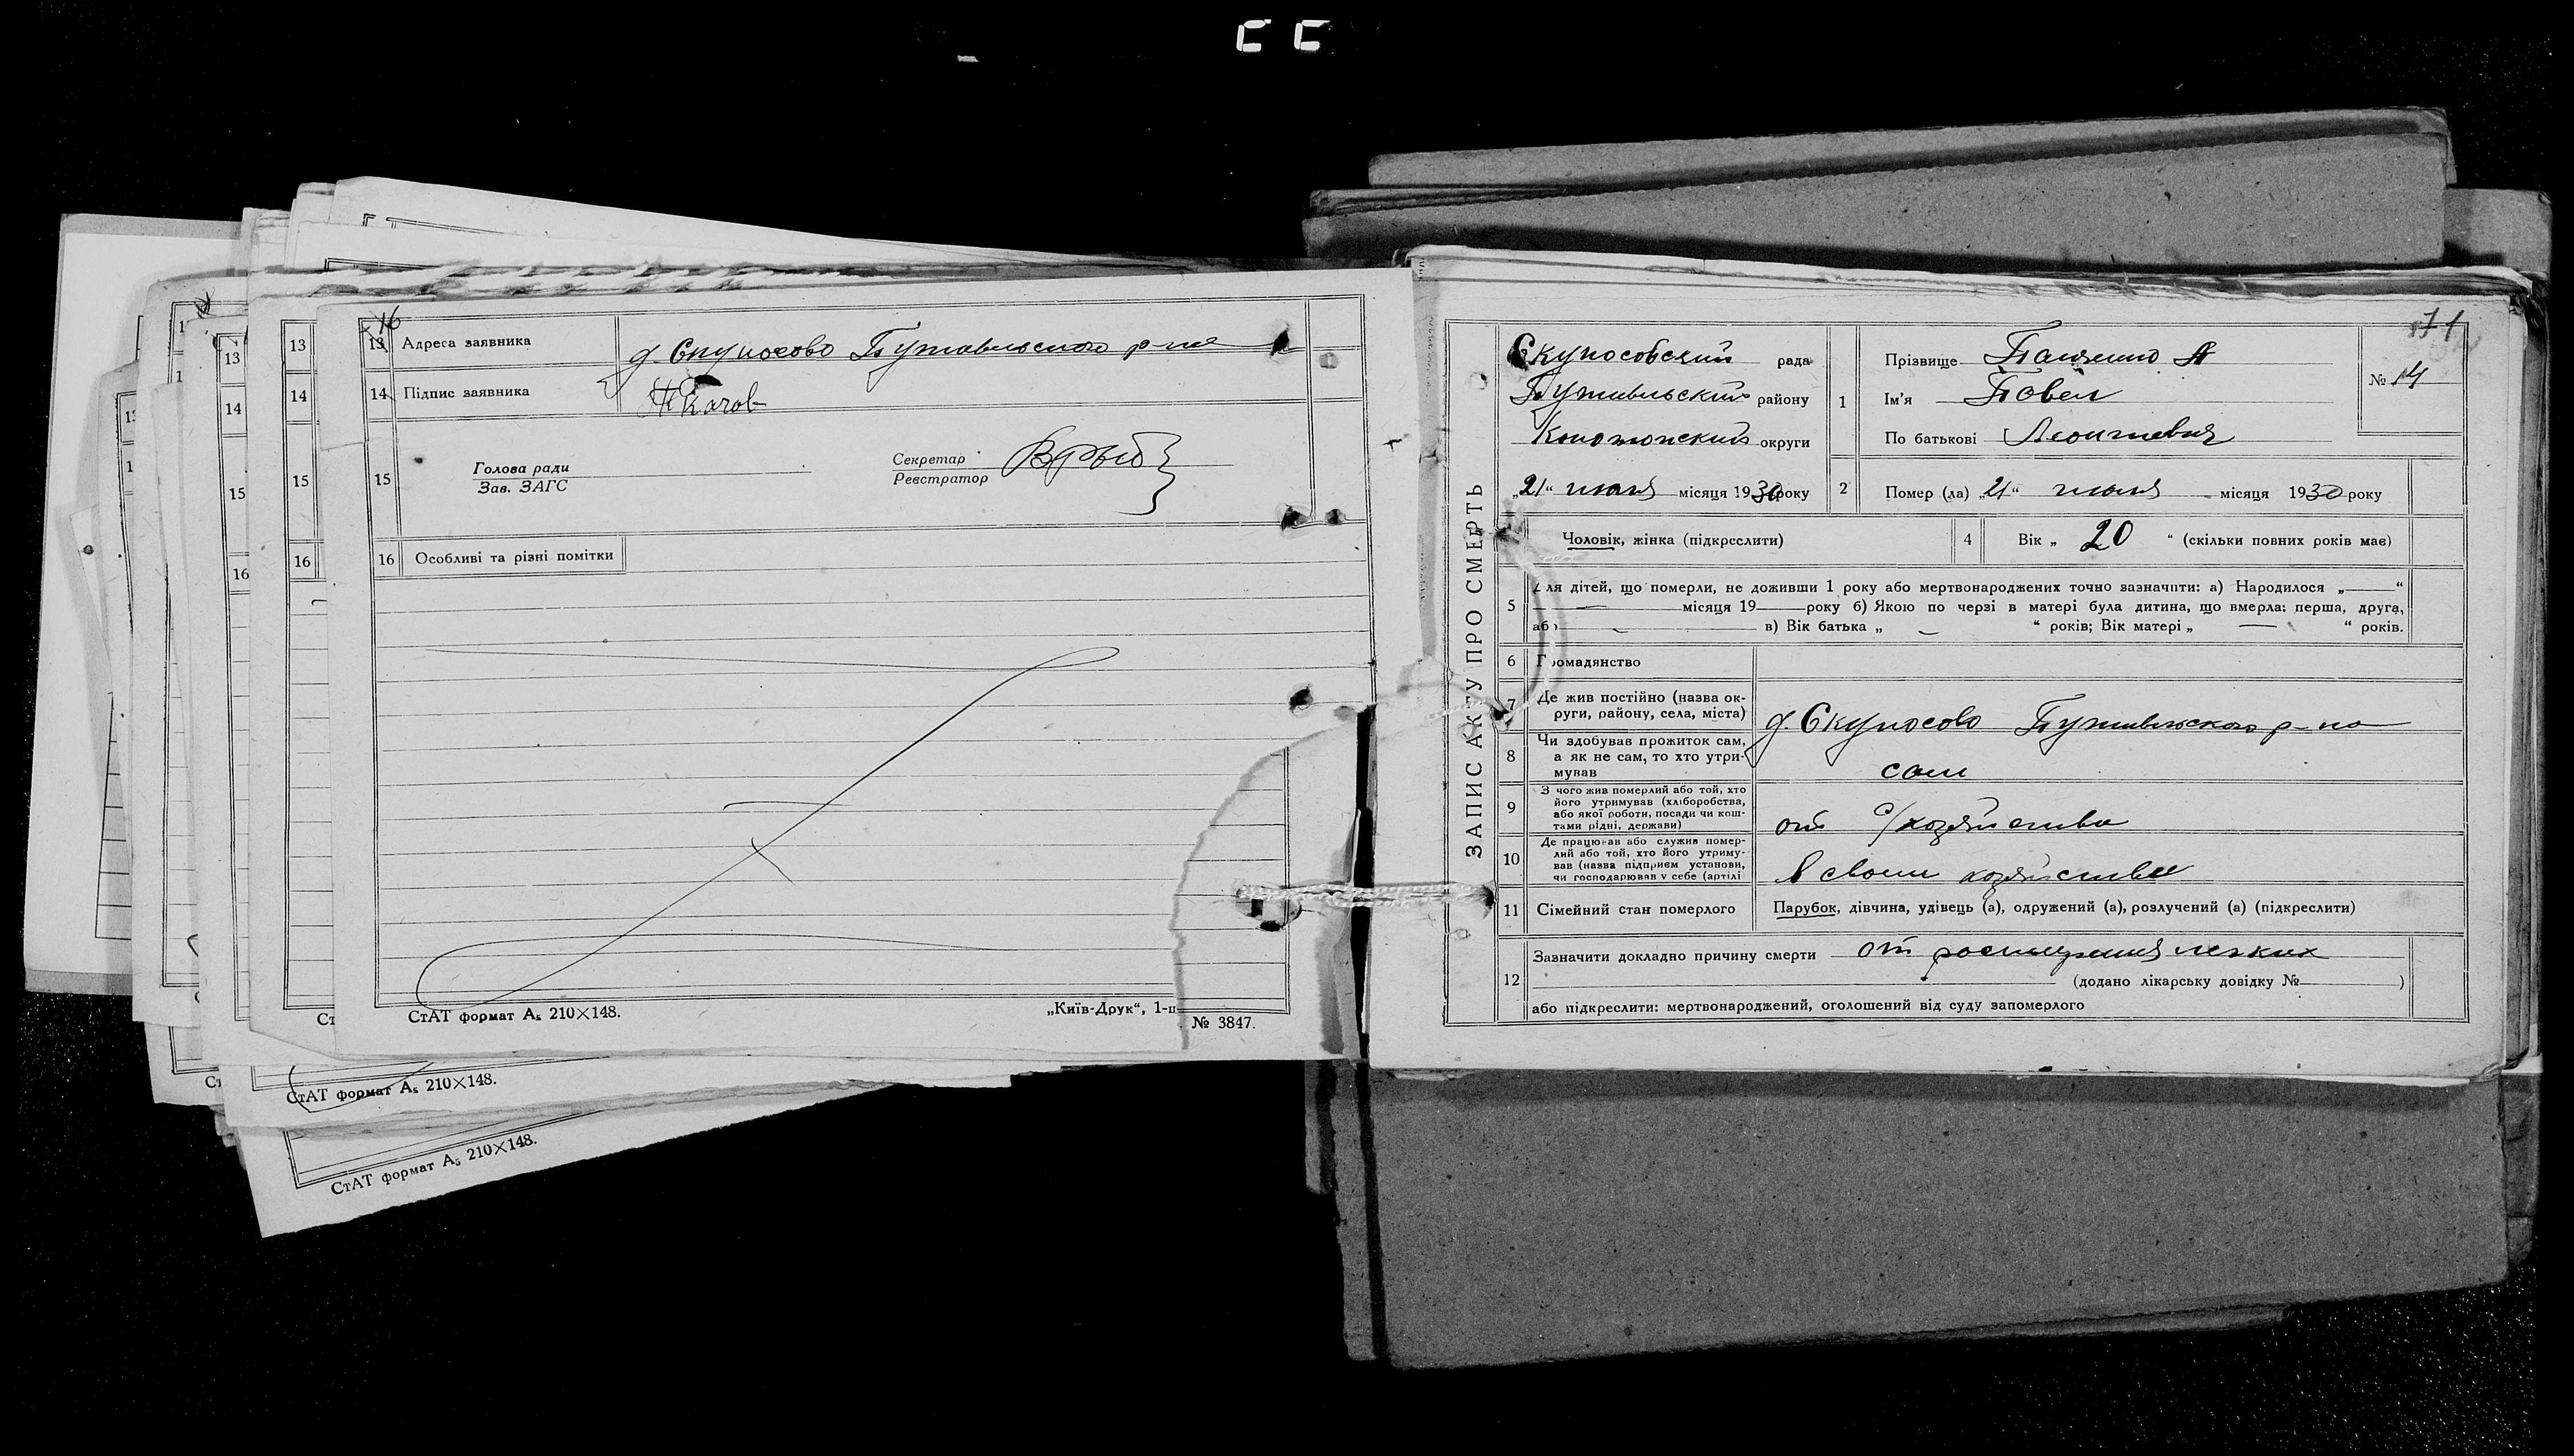 16
13 Адреса заявника д. Скуносово Путивльского р-на
14 Підпис заявника Ткачов
15 Голова ради
Зав. ЗАГС
Секретар
Реєстратор
16 Особливі та різні помітки
СтАТ формат А₅ 210×148.
„Київ-Друк“, 1-
№ 3847.
13
14
15
16
13
14
15
16
СтАТ формат А₅ 210×148.
СтАТ формат А₅ 210×148.
71
ЗАПИС АКТУ ПРО СМЕРТЬ
Скуносовский рада
Путивльский району
Конотопский округи
„21“ июля місяця 1930 року
1 Прізвище Панченко
Ім'я Павел
По батькові Леонтиевич
№ 14
2 Помер (ла) „21“ июля місяця 1930 року
Чоловік, жінка (підкреслити)
4 Вік „ 20 “ (скільки повних років має)
5 Для дітей, що померли, не доживши 1 року або мертвонароджених точно зазначити: а) Народилося „ “
місяця 19 року б) Якою по черзі в матері була дитина, що вмерла: перша, друга,
або в) Вік батька „ “ років; Вік матері „ “ років.
6 Громадянство
7 Де жив постійно (назва ок-
руги, району, села, міста) д. Скуносово Путивльского р-на
8 Чи здобував прожиток сам,
а як не сам, то хто утри-
мував сам
9 З чого жив померлий або той, хто
його утримував (хліборобства,
або якої роботи, посади чи кош-
тами рідні, держави) от с/хозяйства
10 Де працював або служив помер-
лий або той, хто його утриму-
вав (назва підприєм установи,
чи господарював у себе (артілі в своем хозяйстве
11 Сімейний стан померлого Парубок, дівчина, удівець (а), одружений (а), розлучений (а) (підкреслити)
12 Зазначити докладно причину смерти от легких
(додано лікарську довідку № )
або підкреслити: мертвонароджений, оголошений від суду запомерлого